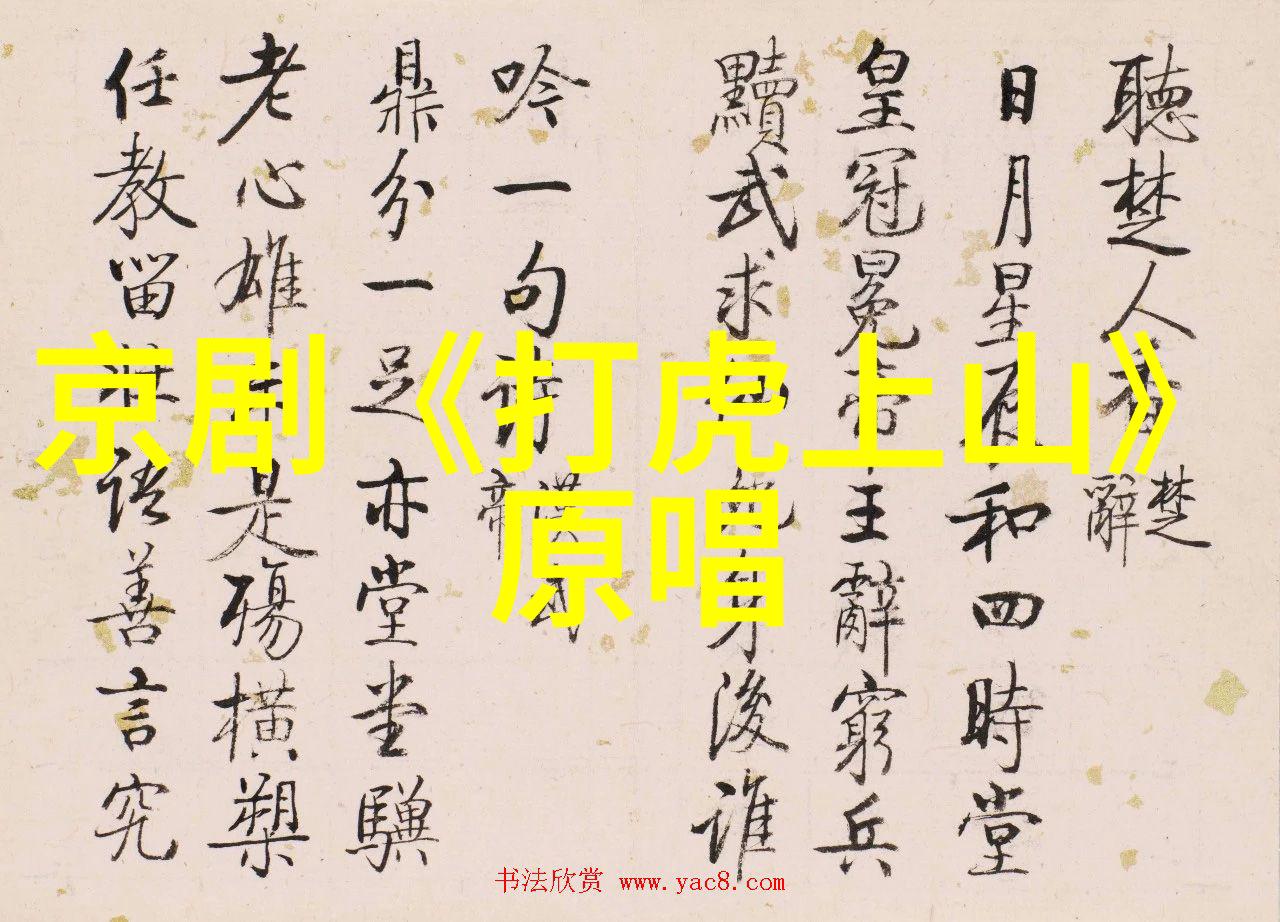 聽楚人看楚辭
日月星辰和四時堂
皇冠冕帝王辭窮兵
黷武求
身後誰
吟一句詩漢武帝
鼎分一足亦堂堂驥
老心雄
是殤橫槊
任教留
語善言究
京剧《打虎上山》
原唱
书法欣赏 www.yac8.com